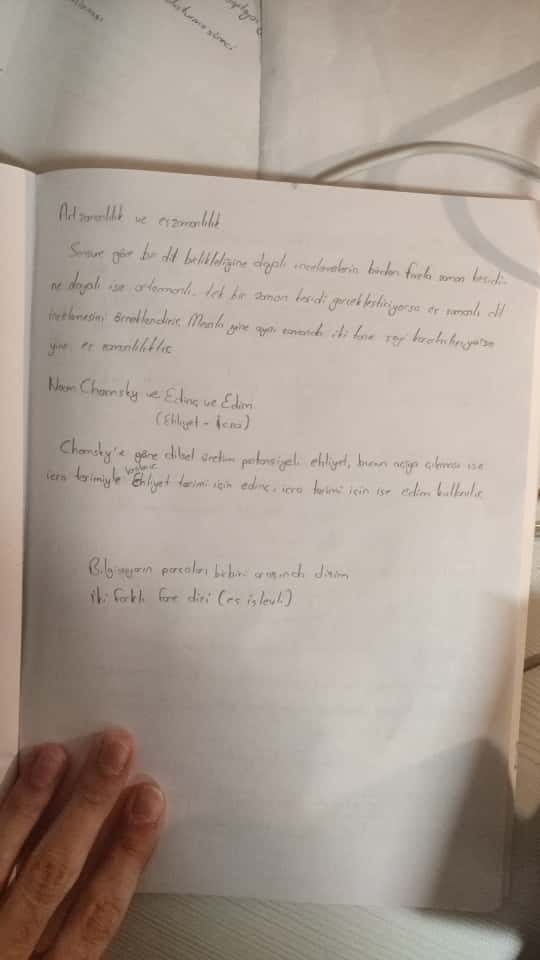 süreci
Artzamanlılık ve eşzamanlılık
göre bir dil belirliliğine dayalı incelemelerin birden fazla zaman kesidi-
ne dayalı ise artzamanlı, tek bir zaman kesidi gerçekleştiriyorsa eş zamanlı dil
incelemesini örneklendirir. Mesela yine aynı zamanda iki tane şeyi
yine eş zamanlılıktır.
Noam Chomsky ve Edinç ve Edim
(Ehliyet - İcra)
Chomsky'e göre dilsel üretim potansiyeli ehliyet, bunun açığa çıkması ise
icra terimiyle Ehliyet terimi için edinç, icra terimi için ise edim kullanılır.
Bilgisayarın parçaları birbiri arasında dizim
iki farklı fare dizi (eş işlevli)